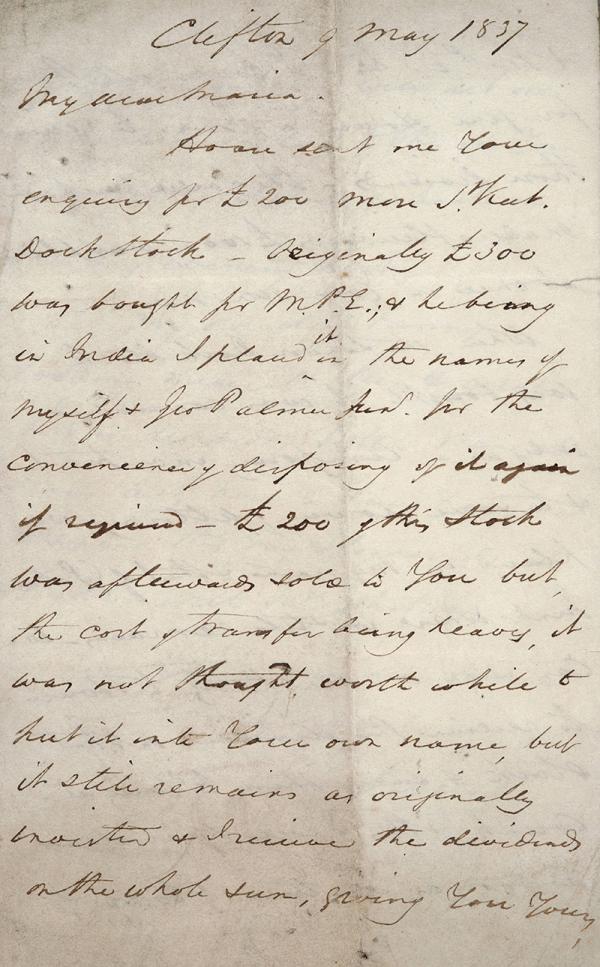 Clifton 9 May 1837
My dear Maria.
sent me Your
enquiry for £200 more St. Kat.
Dock Stock - Originally £300
was bought for M.P.E.; & he being
in India I placed it in the names of
myself & Geo Palmer Junr. for the
conveniency disposing of it again
if required - £200 of this Stock
was afterwards sold to You but,
the cost of transfer being heavy, it
was not thought worth while to
put it into Your own name, but
it still remains as originally
invested & I receive the dividends
on the whole sum, giving You Yours,